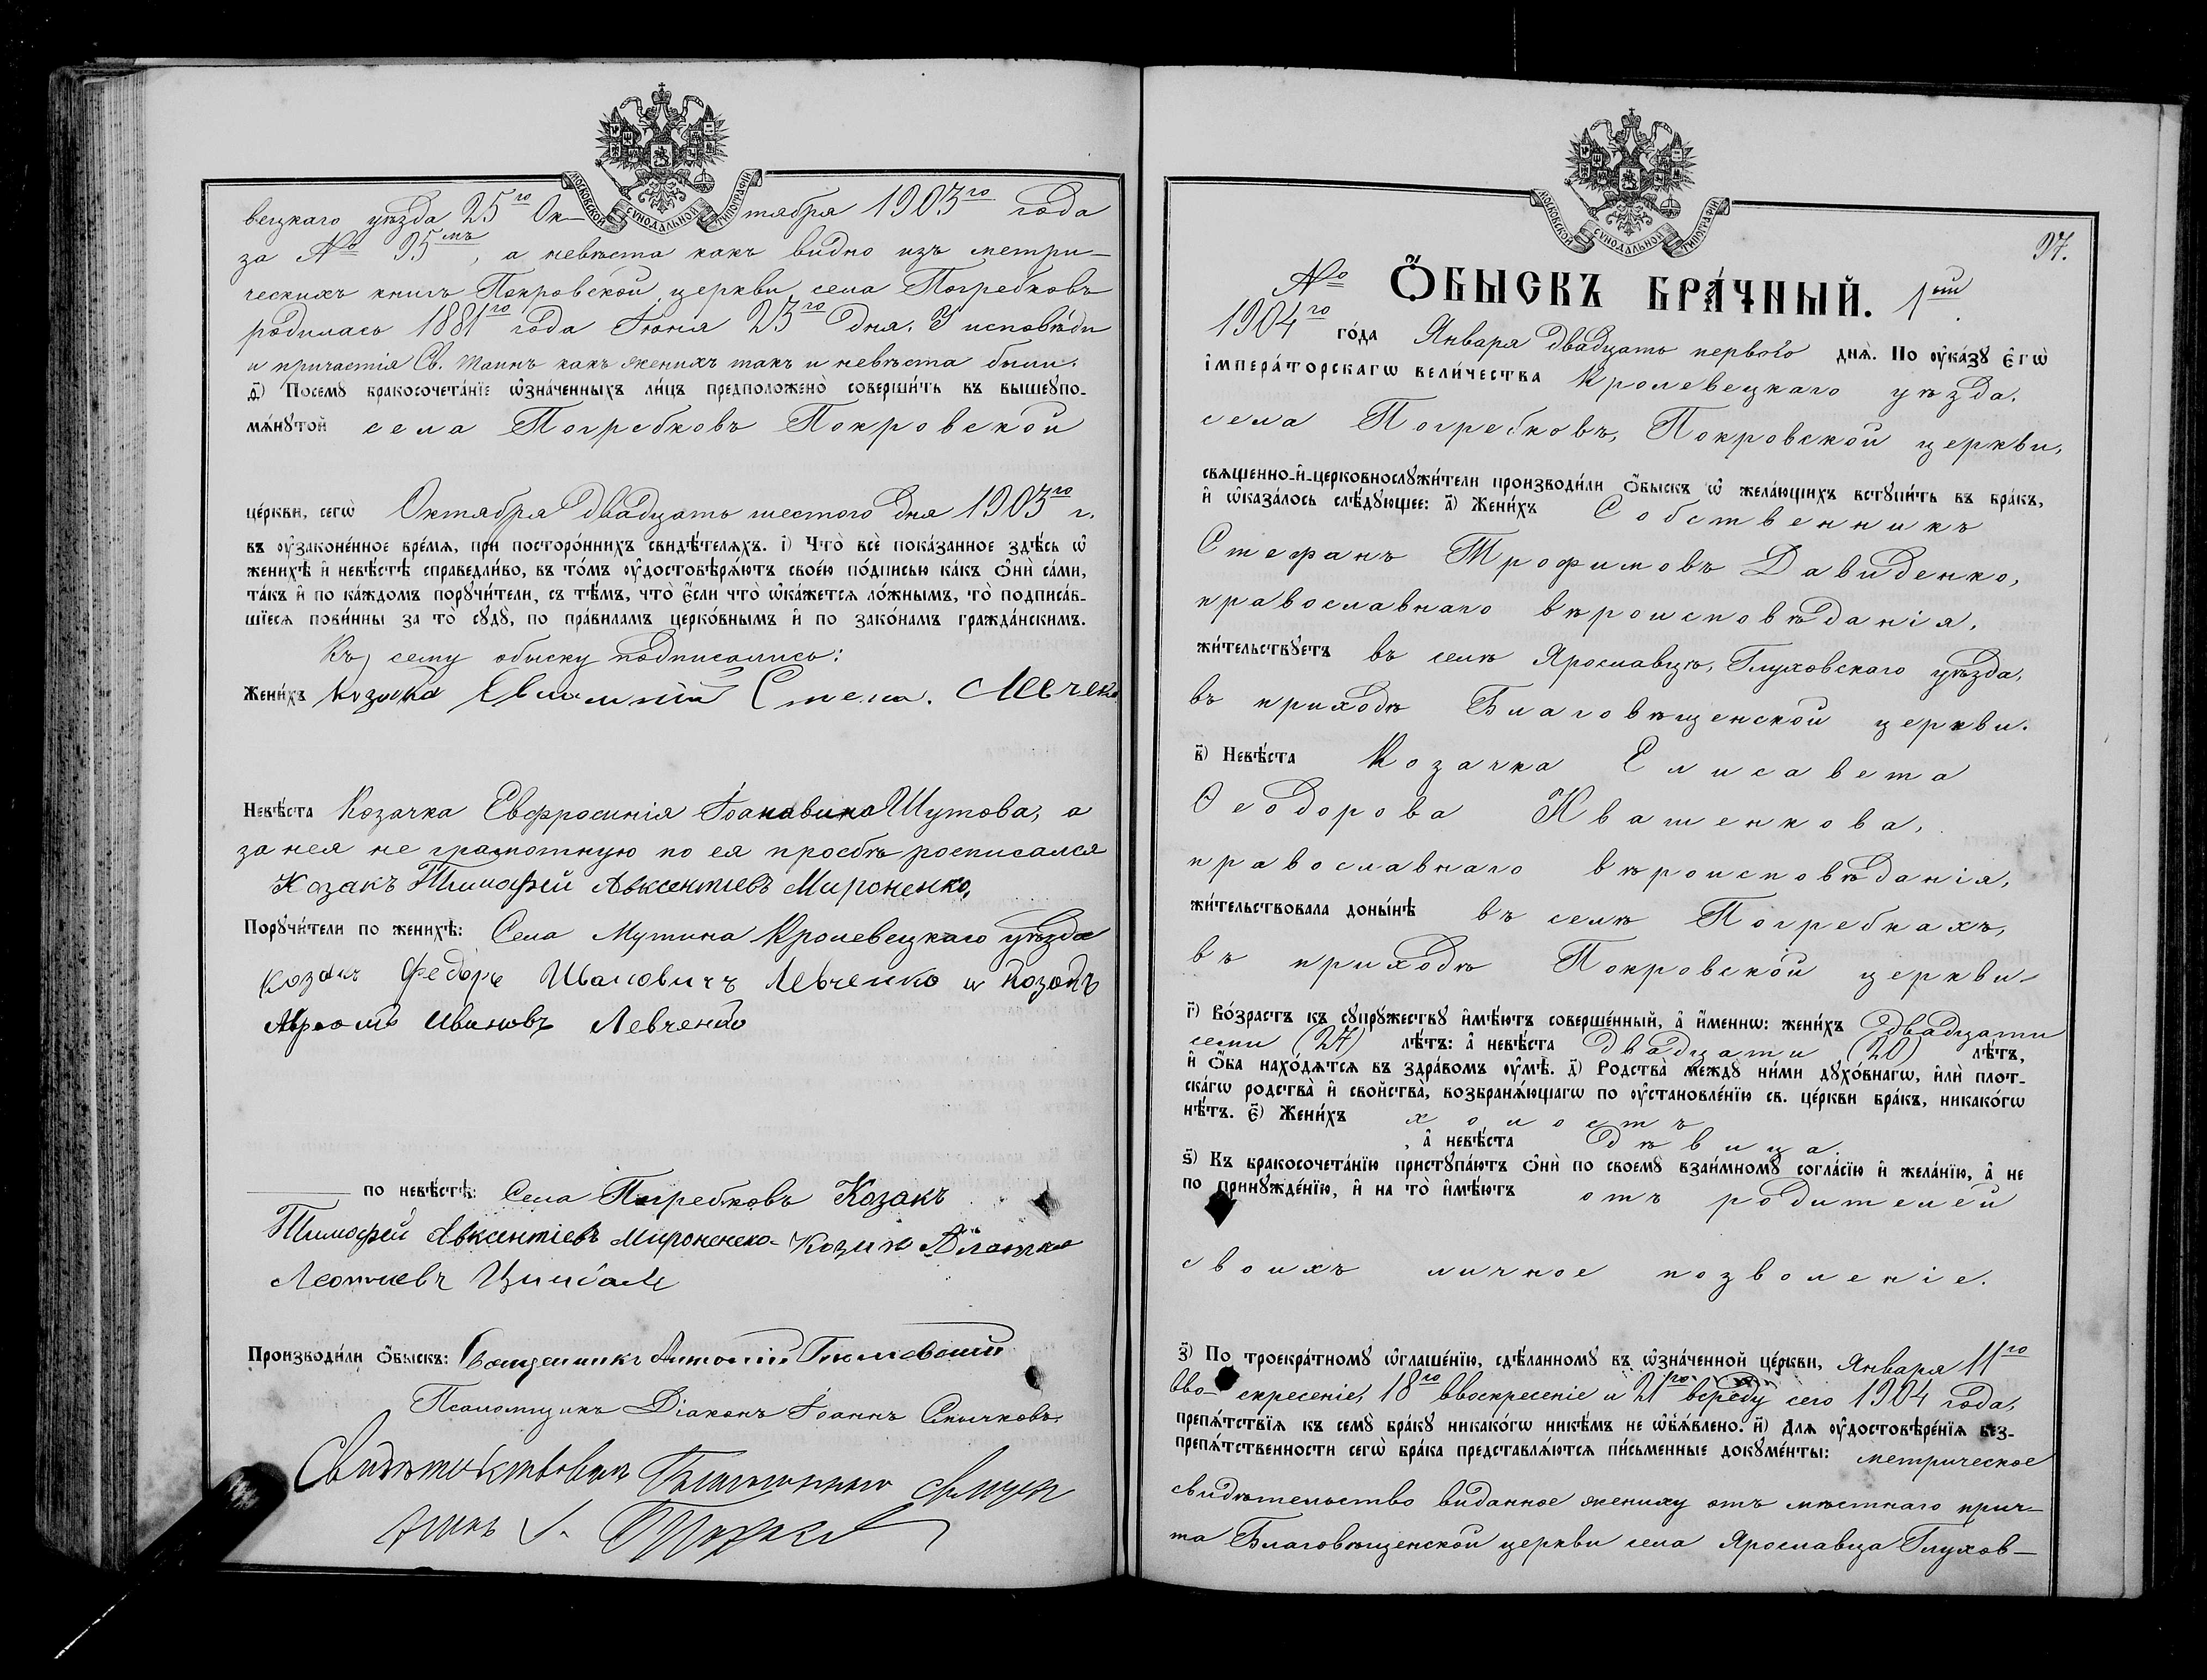 МОСКОВСКОЙ СѴНОДАЛЬНОЙ ТИПОГРАФІИ
вецкаго уѣзда 25го Октября 1903го года
за № 95мъ, а невѣста какъ видно изъ метри-
ческихъ книгъ Покровской церкви села Погребковъ
родилась 1881го года Іюня 23го дня. У исповѣди
и причастія Св. Таинъ какъ женихъ такъ и невѣста были.
Ѳ҃) Посемꙋ бракосочета́нїе ѡ҆зна́ченныхъ ли́цъ предположено̀ соверши́ть въ вышеꙋпо-
мѧ́нꙋтой села Погребковъ Покровской
це́ркви, сегѡ̀ Октября двадцать шестого дня 1903го г.
въ ᲂу҆законе́нное вре́мѧ, при посторо́ннихъ свидѣ́телѧхъ. і҃) Что̀ всѐ пока́занное здѣ́сь ѡ҆
женихѣ̀ и҆ невѣ́стѣ справедли́во, въ то́мъ ᲂу҆достовѣрѧ́ютъ свое́ю по́дписью ка́къ ѻ҆нѝ са́ми,
та́къ и҆ по ка́ждомъ порꙋчи́тели, съ тѣ́мъ, что̀ є҆́сли что̀ ѡ҆ка́жетсѧ ло́жнымъ, то̀ подписа́в-
шїесѧ пови́нны за то̀ сꙋдꙋ̀, по пра́виламъ церко́внымъ и҆ по зако́намъ гражда́нскимъ.
Къ сему обыску подписались:
Жени́хъ козакъ Стеф. Левченко
Невѣ́ста Козачка Евфросинія Іоановина Шутова, а
за нея не грамотную по ея просьбѣ росписался
Козакъ Тимофей Авксентіевъ Мироненко,
Порꙋчи́тели по женихѣ̀: Села Мутина Кролевецкаго уѣзда
козакъ Федоръ Ивановичъ Левченко и козакъ
Ивановъ Левченко
по невѣ́стѣ: Села Погребковъ Козакъ
Тимофей Авксентіевъ Мироненко- козакъ
Леонтіевъ
Производи́ли ѻ҆́быскъ: Священникъ Антоній
Псаломщикъ Діаконъ Іоаннъ Скичковъ.
Свидѣтельствовалъ Благочинный
МОСКОВСКОЙ СѴНОДАЛЬНОЙ ТИПОГРАФІИ
97.
№ Ѻ҆́БЫСКЪ БРА́ЧНЫЙ. 1ый
1904го го́да Января двадцать первого днѧ̀. По ᲂу҆ка́зꙋ є҆гѡ̀
і҆мпера́торскагѡ вели́чества Кролевецкаго уѣзда.
села Погребковъ, Покровской церкви,
свѧщенно-и҆-церковнослꙋжи́тели производи́ли ѻ҆́быскъ ѡ҆ жела́ющихъ встꙋпи́ть въ бра́къ,
и҆ ѡ҆каза́лось слѣ́дꙋющее: а҃) Жени́хъ Собственникъ
Стефанъ Трофимовъ Давиденко,
православнаго вѣроисповѣданія,
жи́тельствꙋетъ въ селѣ Ярославцѣ, Глуховскаго уѣзда,
въ приходѣ Благовѣщенской церкви.
в҃) Невѣ́ста Козачка Елисавета
Ѳеодорова Квашенкова,
православнаго вѣроисповѣданія,
жи́тельствовала доны́нѣ въ селѣ Погребкахъ,
въ приходѣ Покровской церкви-
г҃) Во́зрастъ къ сꙋпрꙋ́жествꙋ и҆мѣ́ютъ соверше́нный, а҆ и҆́меннѡ: жени́хъ двадцати
семи (27) лѣ́тъ: а҆ невѣ́ста двадцати (20) лѣ́тъ,
и҆ ѻ҆́ба нахо́дѧтсѧ въ здра́вомъ ᲂу҆мѣ̀. д҃) Родства̀ междꙋ̀ ни́ми дꙋхо́внагѡ, и҆лѝ плот-
ска́гѡ родства̀ и҆ свойства̀, возбранѧ́ющагѡ по ᲂу҆становле́нїю св. це́ркви бра́къ, никако́гѡ
нѣ́тъ. є҃) Жени́хъ холостъ
, а҆ невѣ́ста дѣвица.
ѕ҃) Къ бракосочета́нїю пристꙋпа́ютъ ѻ҆нѝ по своемꙋ̀ взаи́мномꙋ согла́сїю и҆ жела́нїю, а҆ не
по принꙋжде́нїю, и҆ на то̀ и҆мѣ́ютъ отъ родителей
своихъ личное позволеніе.
з҃) По троекра́тномꙋ ѡ҆глаше́нїю, сдѣ́ланномꙋ въ ѡ҆зна́ченной це́ркви, Января 11го
вво- скресеніе, 18го ввоскресеніе и 21го всреду сего 1904 года,
препѧ́тствїѧ къ семꙋ̀ бра́кꙋ никако́гѡ никѣ́мъ не ѡ҆б̾ѧ́влено. и҃) Длѧ ᲂу҆достовѣре́нїѧ без-
препѧ́тственности сегѡ̀ бра́ка представлѧ́ютсѧ пи́сьменные докꙋме́нты: метрическое
свидѣтельство виданное жениху отъ мѣстнаго прич-
та Благовѣщенской церкви села Ярославца Глухов-